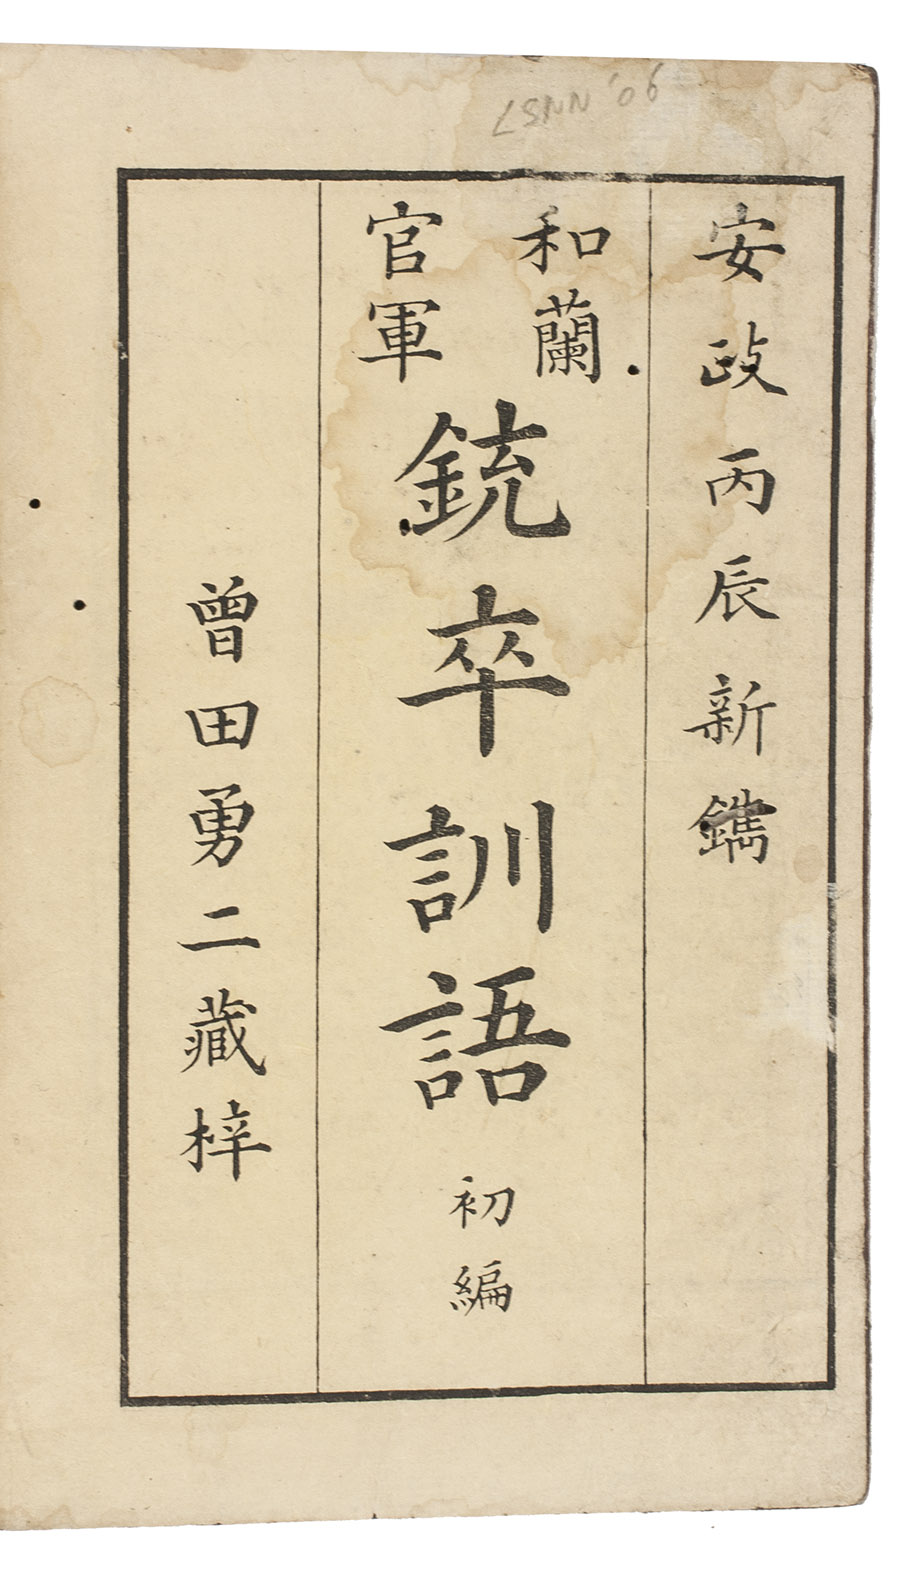 安政丙辰新鐫
和蘭
官軍
銃卒訓語 初編
曽田勇二藏梓